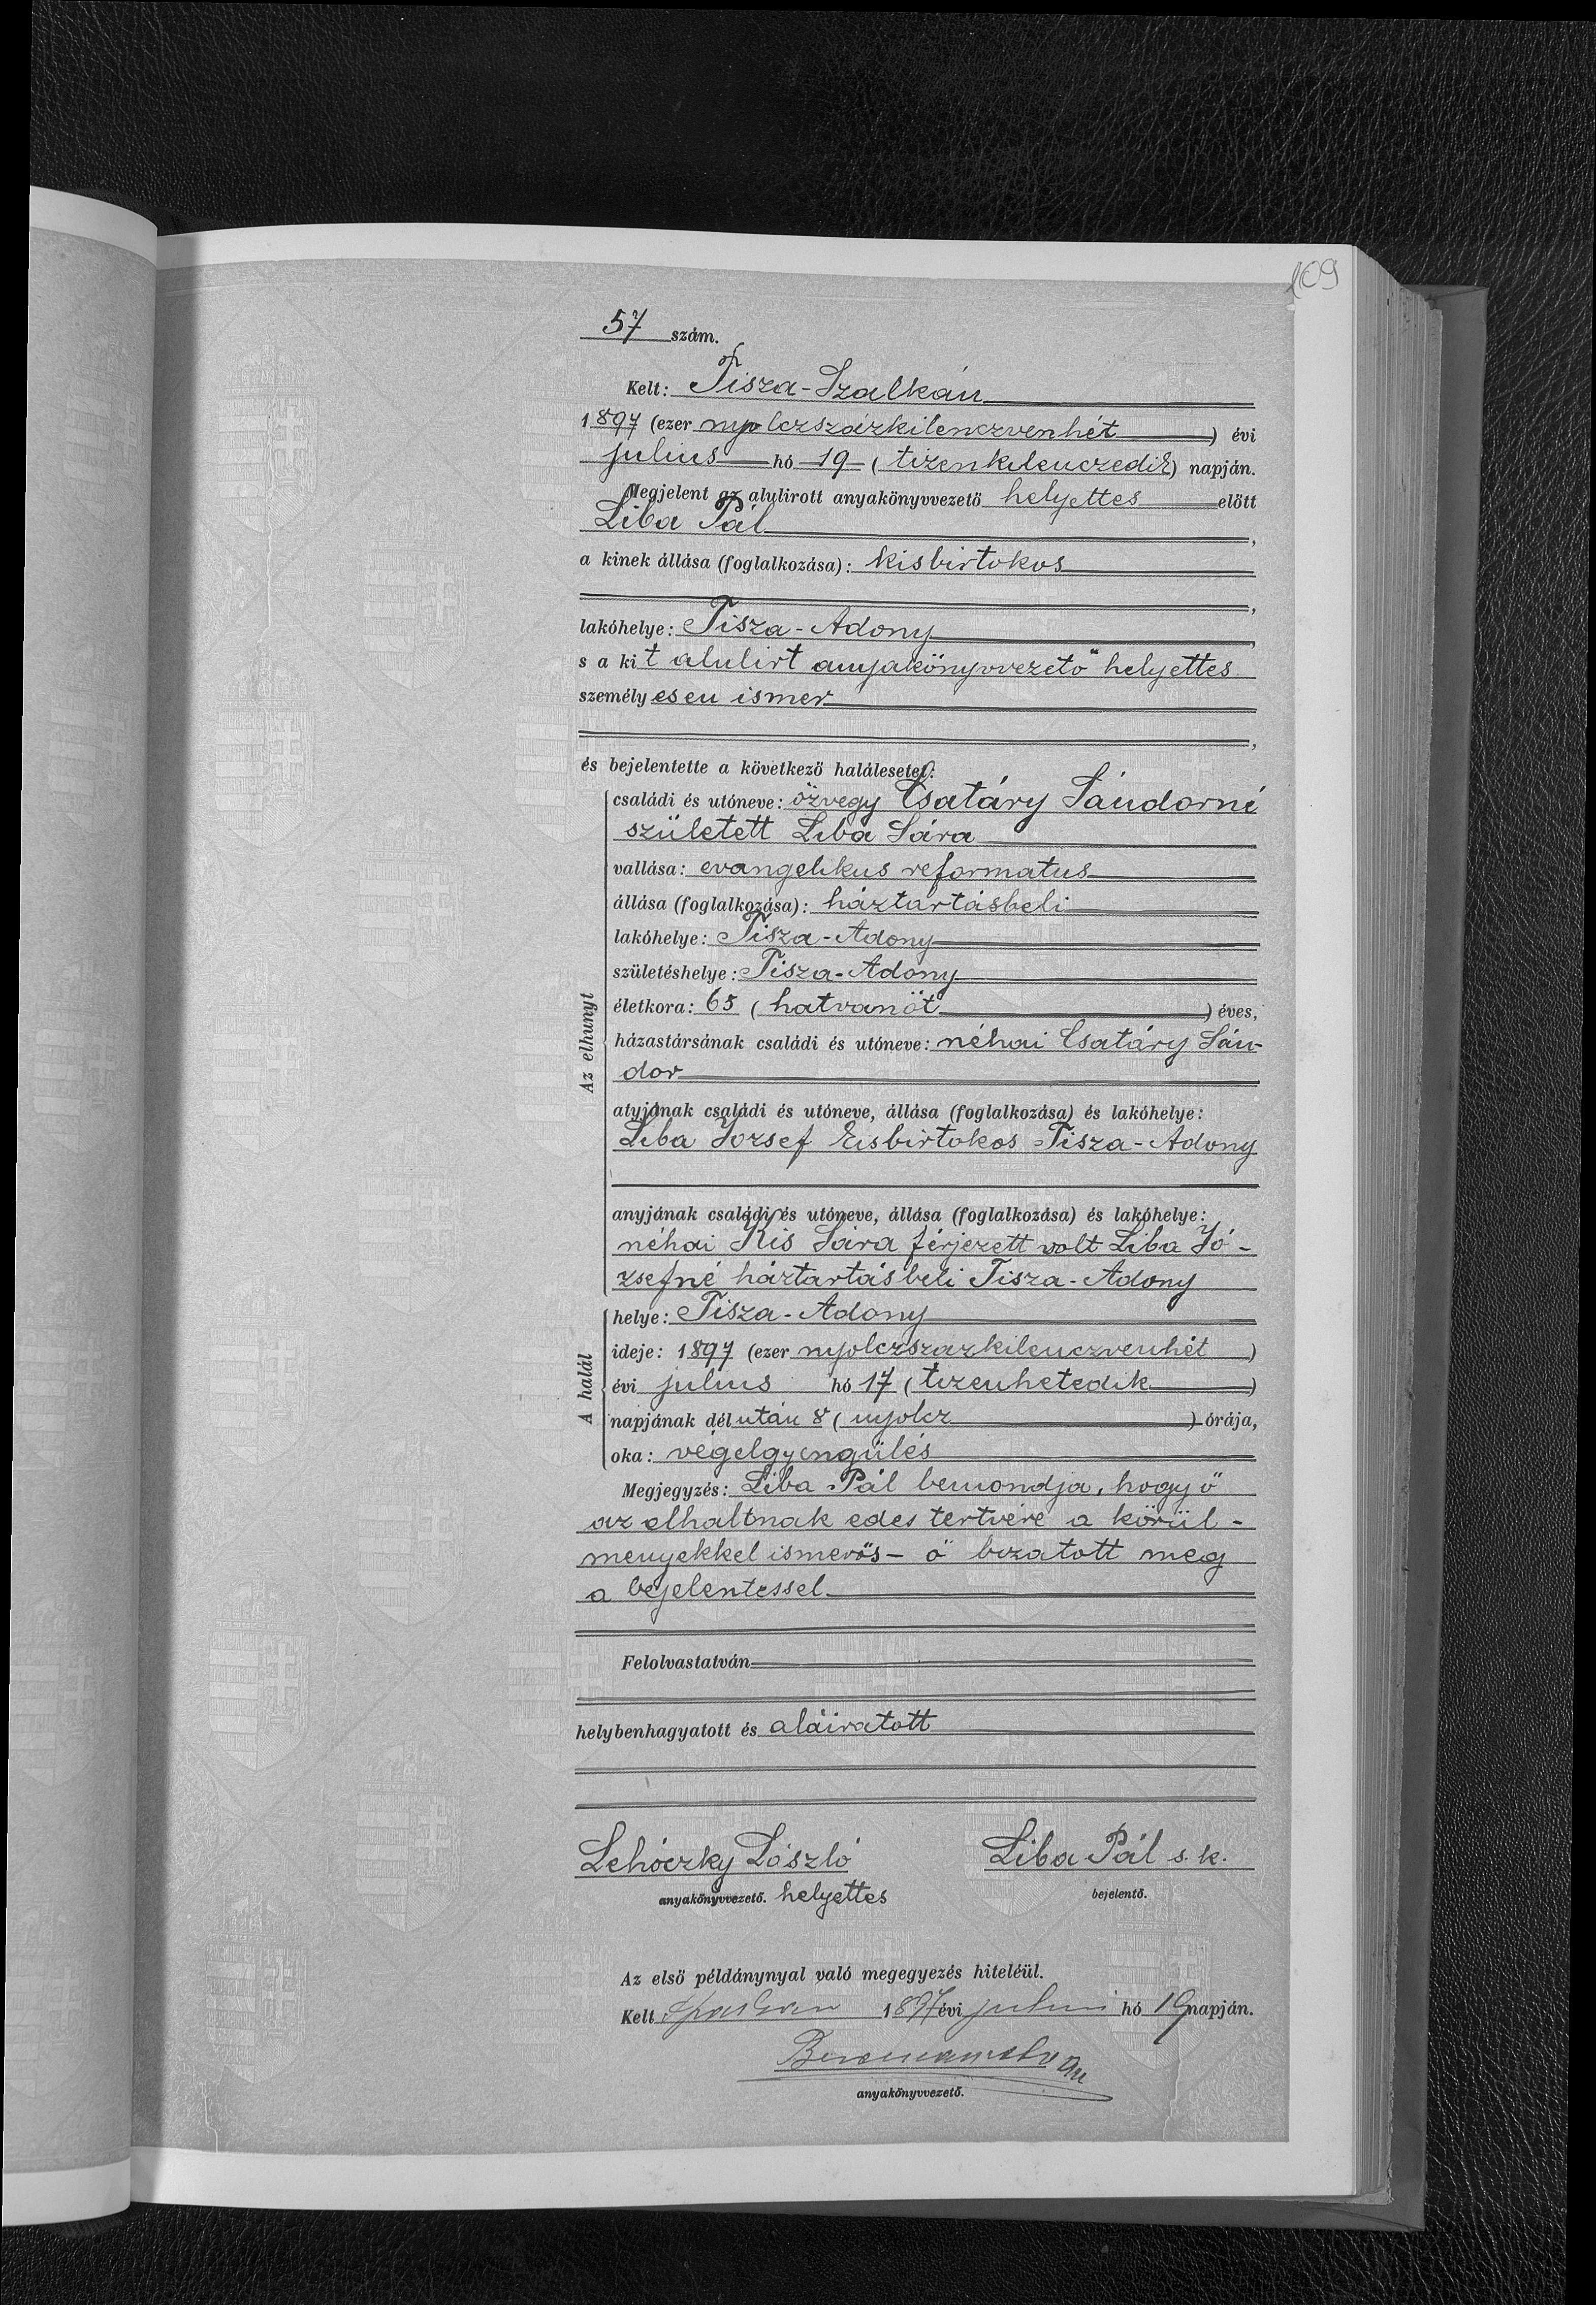 109
57 szám.
Kelt: Tisza-Szalkán
1897 (ezer nyolczszázkilenczvenhét) évi
julius hó 19 (tizenkilenczedik) napján.
Megjelent az alulirott anyakönyvvezető helyettes előtt
Liba Pál,
a kinek állása (foglalkozása): kisbirtokos
,
lakóhelye: Tisza-Adony,
s a kit alulirt anyakönyvvezető helyettes
személyesen ismer
,
és bejelentette a következő halálesetet:
Az elhunyt
családi és utóneve: özvegy Csatáry Sándorné
született Liba Sára
vallása: evangelikus reformatus
állása (foglalkozása): háztartásbeli
lakóhelye: Tisza-Adony
születéshelye: Tisza-Adony
életkora: 65 (hatvanöt) éves,
házastársának családi és utóneve: néhai Csatáry Sán-
dor
atyjának családi és utóneve, állása (foglalkozása) és lakóhelye:
Liba József kisbirtokos Tisza-Adony
anyjának családi és utóneve, állása (foglalkozása) és lakóhelye:
néhai Kis Sára férjezett volt Liba Jó-
zsefné háztartásbeli Tisza-Adony
A halál
helye: Tisza-Adony
ideje: 1897 (ezer nyolczszazkilenczvenhét)
évi julius hó 17 (tizenhetedik)
napjának délután 8 (nyolcz) órája,
oka: végelgyengülés
Megjegyzés: Liba Pál bemondja, hogy ő
az elhaltnak edes tertvére a körül-
menyekkel ismerős - ő bizatott meg
a bejelentessel
Felolvastatván
helybenhagyatott és aláiratott
Lehóczky László Liba Pál s. k.
anyakönyvvezető. helyettes bejelentő.
Az első példánynyal való megegyezés hiteléül.
Kelt 1897 évi juli hó 19 napján.
anyakönyvvezető.